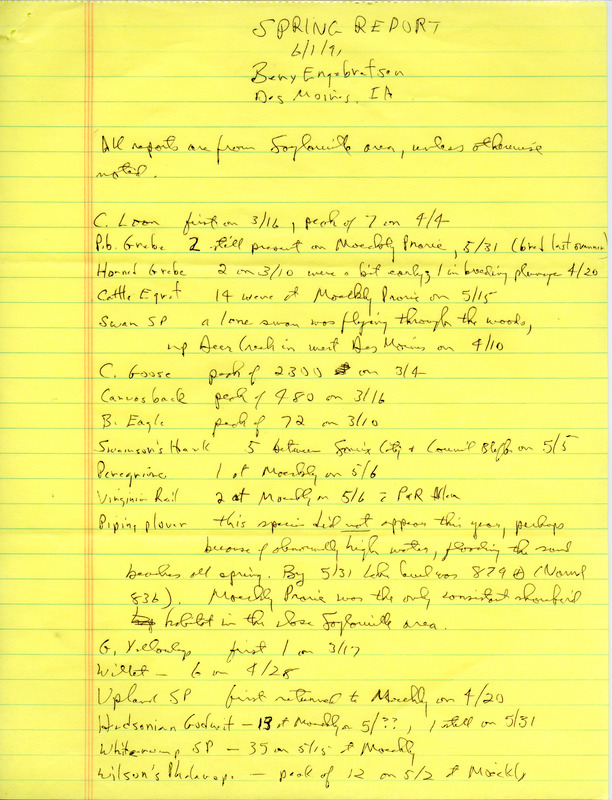 SPRING REPORT
6/1/91
Bery Engebretsen
Des Moines, IA
All reports are from Saylorville area, unless otherwise
noted.
C. Loon first on 3/16, peak of 7 on 4/4
P.b. Grebe 2 still present on Moeckly Prairie, 5/31 (bred last summer)
Horned Grebe 2 on 3/10 were a bit early; 1 in breeding plumage 4/20
Cattle Egret 14 were at Moeckly Prairie on 5/15
Swan SP a lone swan was flying through the woods,
up Deer Creek in west Des Moines on 4/10
C. Goose peak of 2300 on 3/4
Canvasback peak of 480 on 3/16
B. Eagle peak of 72 on 3/10
Swainson's Hawk 5 between Sioux City & Council Bluffs on 5/5
Peregrine 1 at Moeckly on 5/6
Virginia Rail 2 at Moeckly on 5/6 P&R Allen
Piping plover this species did not appear this year, perhaps
because of abnormally high water, flooding the sand
beaches all spring. By 5/31 lake level was 879 (Normal
836). Moeckly Prairie was the only consistent shorebird
habitat in the close Saylorville area.
G. Yellowlegs first 1 on 3/17
Willet – 6 on 4/28
Upland SP first returned to Moeckly on 4/20
Hudsonian Godwit – 13 at Moeckly on 5/??, 1 still on 5/31
Whiterump SP – 35 on 5/15 at Moeckly
Wilson's Phalarope – peak of 12 on 5/2 at Moeckly